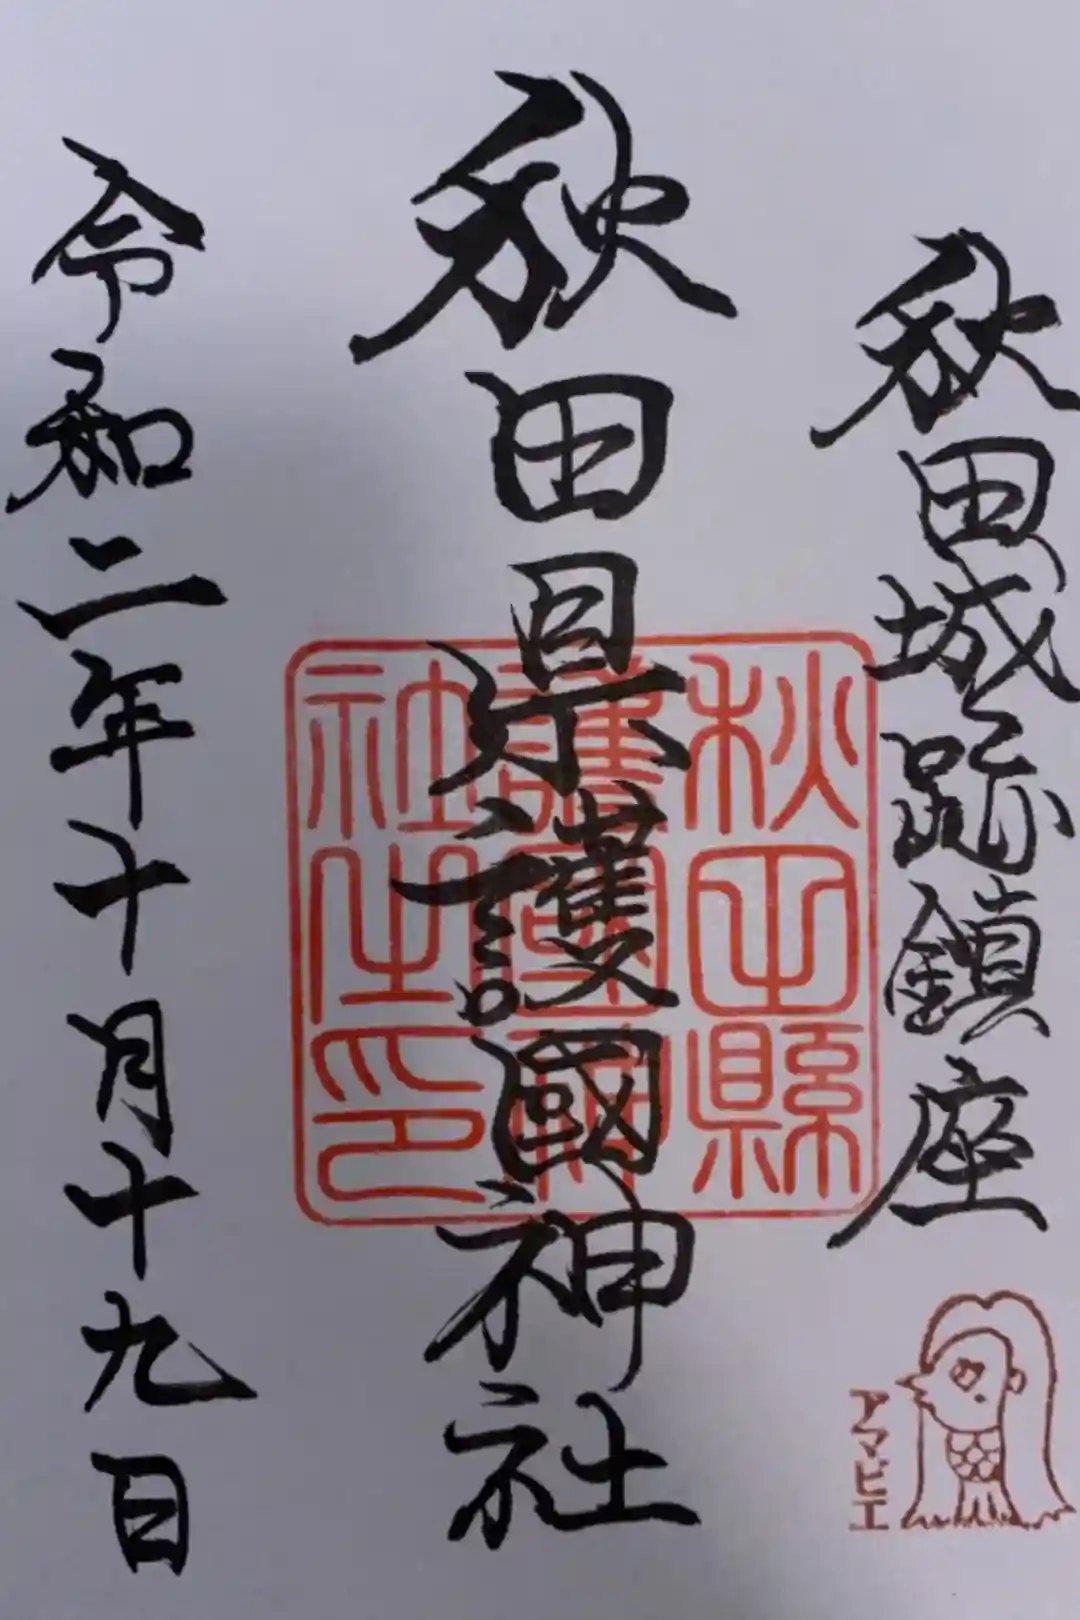 秋田城跡鎮座
アマビエ
秋田県護國神社
秋田縣
護國神
社之印
令和二年十月十九日